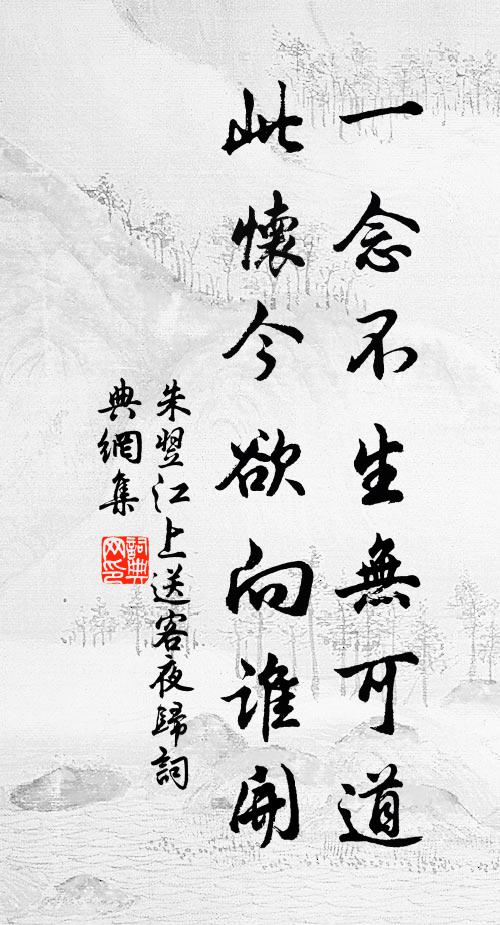 一念不生無可道
此懷今欲向誰開
朱翌江上送客夜歸詞
典網集
詞典
网印